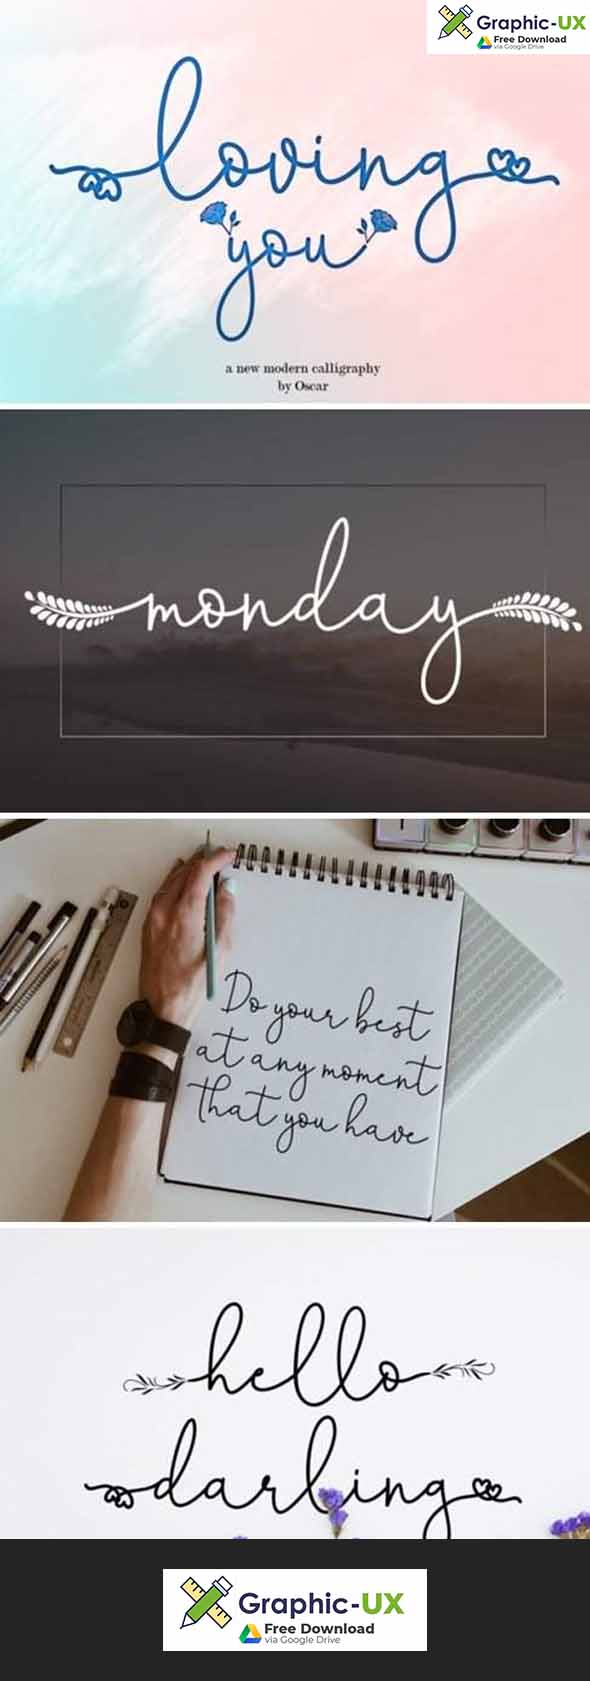 Graphic-UX
Free Download
via Google Drive
loving
you
a new modern calligraphy
by Oscar
monday
Do your best
at any moment
that you have
hello
darling
Graphic-UX
Free Download
via Google Drive